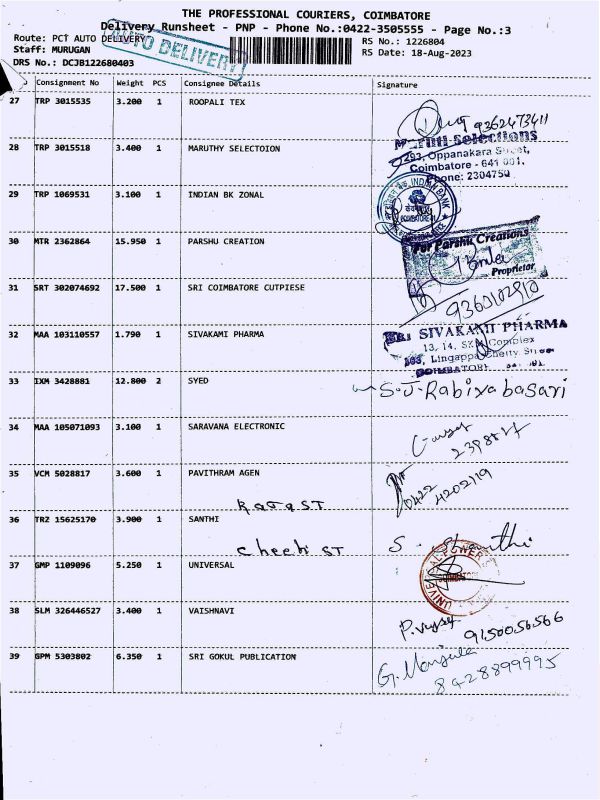 THE PROFESSIONAL COURIERS, COIMBATORE
Delivery Runsheet - PNP - Phone No.:0422-3505555 - Page No.:3
Route: PCT AUTO DELIVERY
RS No.: 1226804
AUTO DELIVERY
Staff: MURUGAN
RS Date: 18-Aug-2023
DRS No.: DCJB122680403
Consignment No Weight PCS Consignee Details Signature
27 TRP 3015535 3.200 1 ROOPALI TEX
9362473411
28 TRP 3015518 3.400 1 MARUTHY SELECTOION
Maruti Selections
293, Oppanakara Street,
Coimbatore - 641 001.
Phone: 2304750
29 TRP 1069531 3.100 1 INDIAN BK ZONAL
INDIAN BANK
COIMBATORE
30 MTR 2362864 15.950 1 PARSHU CREATION
For Parshu Creations
Proprietor
31 SRT 302074692 17.500 1 SRI COIMBATORE CUTPIESE
32 MAA 103110557 1.790 1 SIVAKAMI PHARMA
SRI SIVAKAMI PHARMA
13, 14, Complex
Lingappa Chetty Street
COIMBATORE
33 IXM 3428881 12.800 2 SYED
S.J.Rabiyabasari
34 MAA 105071093 3.100 1 SARAVANA ELECTRONIC
35 VCM 5028817 3.600 1 PAVITHRAM AGEN
0422
4202119
36 TR2 15625170 3.900 1 SANTHI
S. Shanthi
37 GMP 1109096 5.250 1 UNIVERSAL
UNIVERSAL POWER
38 SLM 326446527 3.400 1 VAISHNAVI
9150056566
39 GPM 5303802 6.350 1 SRI GOKUL PUBLICATION
G. Manjula
8428899995